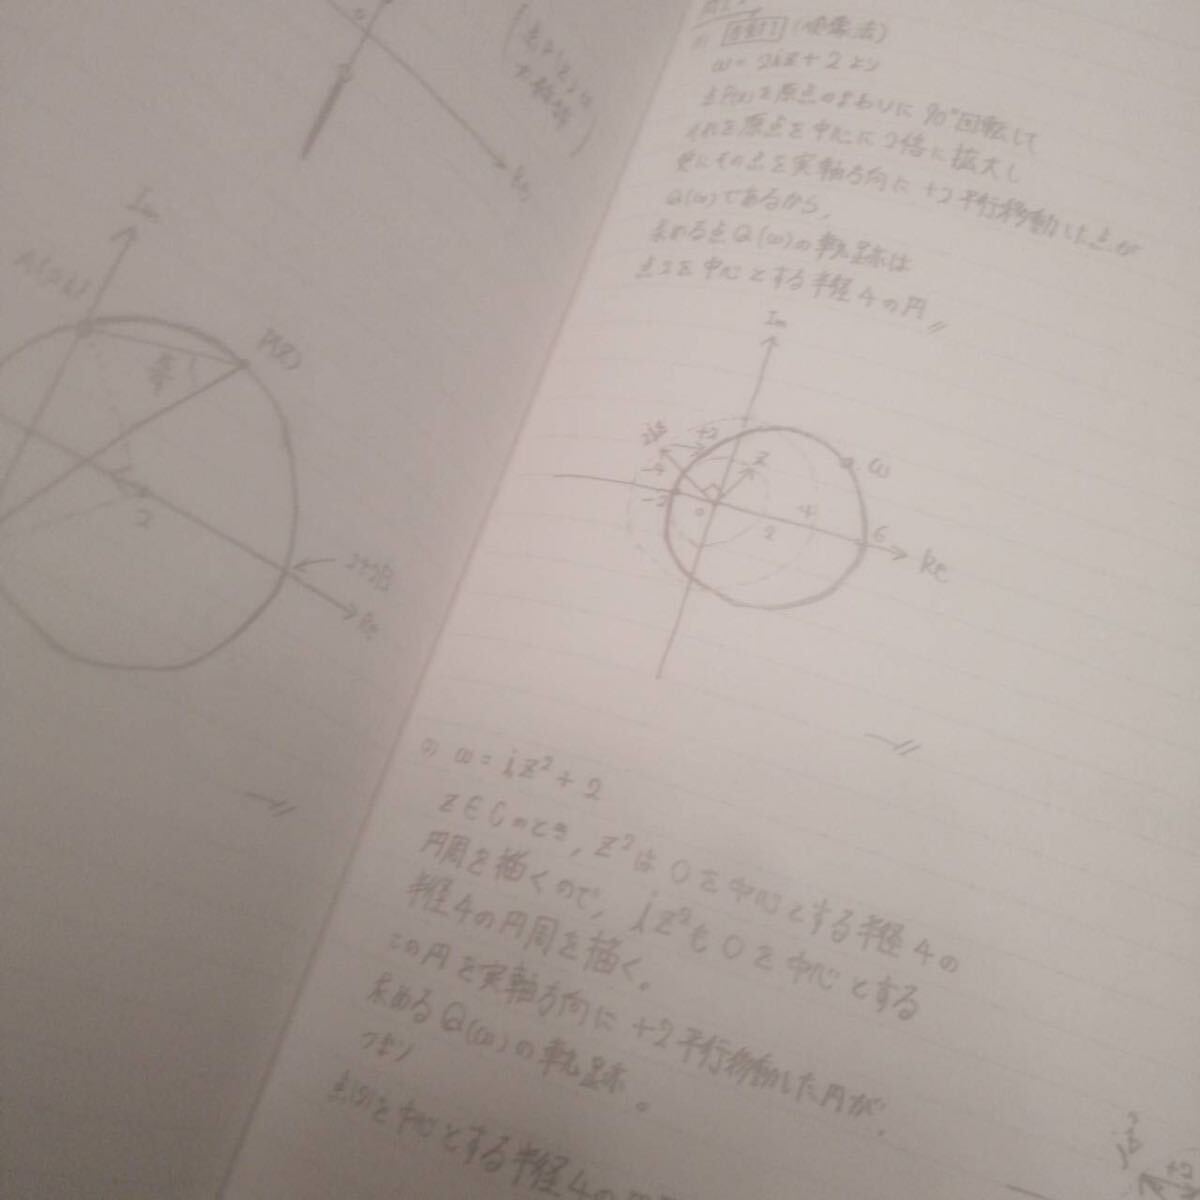 Im
P(z)
2
Re
Re
(映像法)
ω = 2iz + 2 より
点P(z)を原点のまわりに 90°回転して
それを原点を中心に2倍に拡大し
更にその点を実軸方向に +2 平行移動した点が
Q(ω)であるから,
求める点Q(ω)の軌跡は
点2を中心とする半径4の円
Im
2iz
+2
z
ω
-4
-2
0
2
4
6
Re
(2) ω = iz² + 2
z∈Cのとき, z²は0を中心とする半径4の
円周を描くので, iz²も0を中心とする
半径4の円周を描く。
この円を実軸方向に +2平行移動した円が,
求めるQ(ω)の軌跡。
を中心とする半径4の
+2